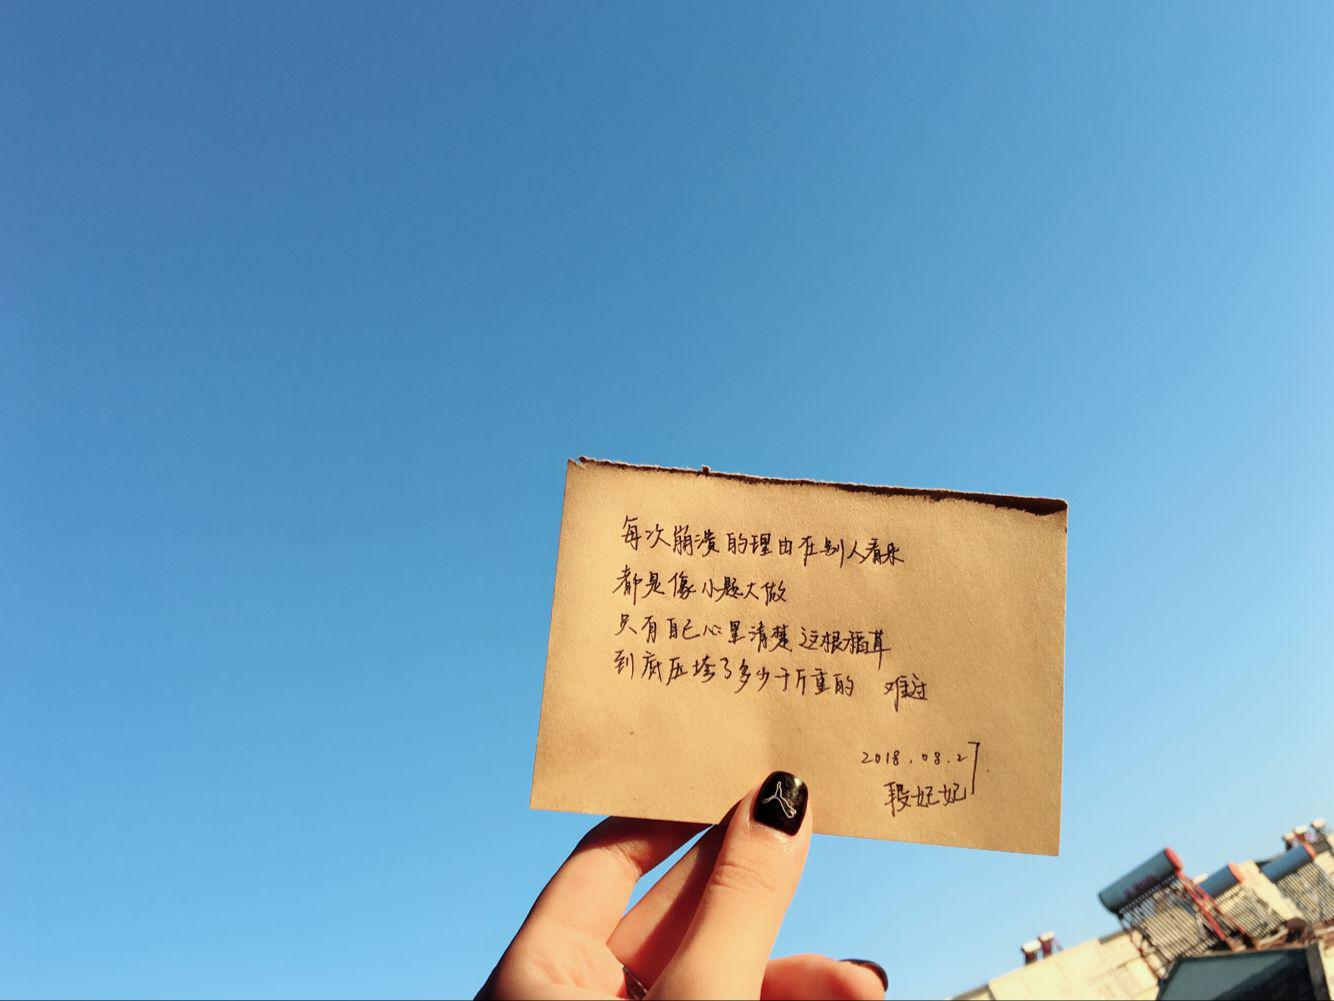 每次崩溃的理由在别人看来
都是像小题大做
只有自己心里清楚这根稻草
到底压垮了多少千斤重的 难过
2018.08.27
段妃妃